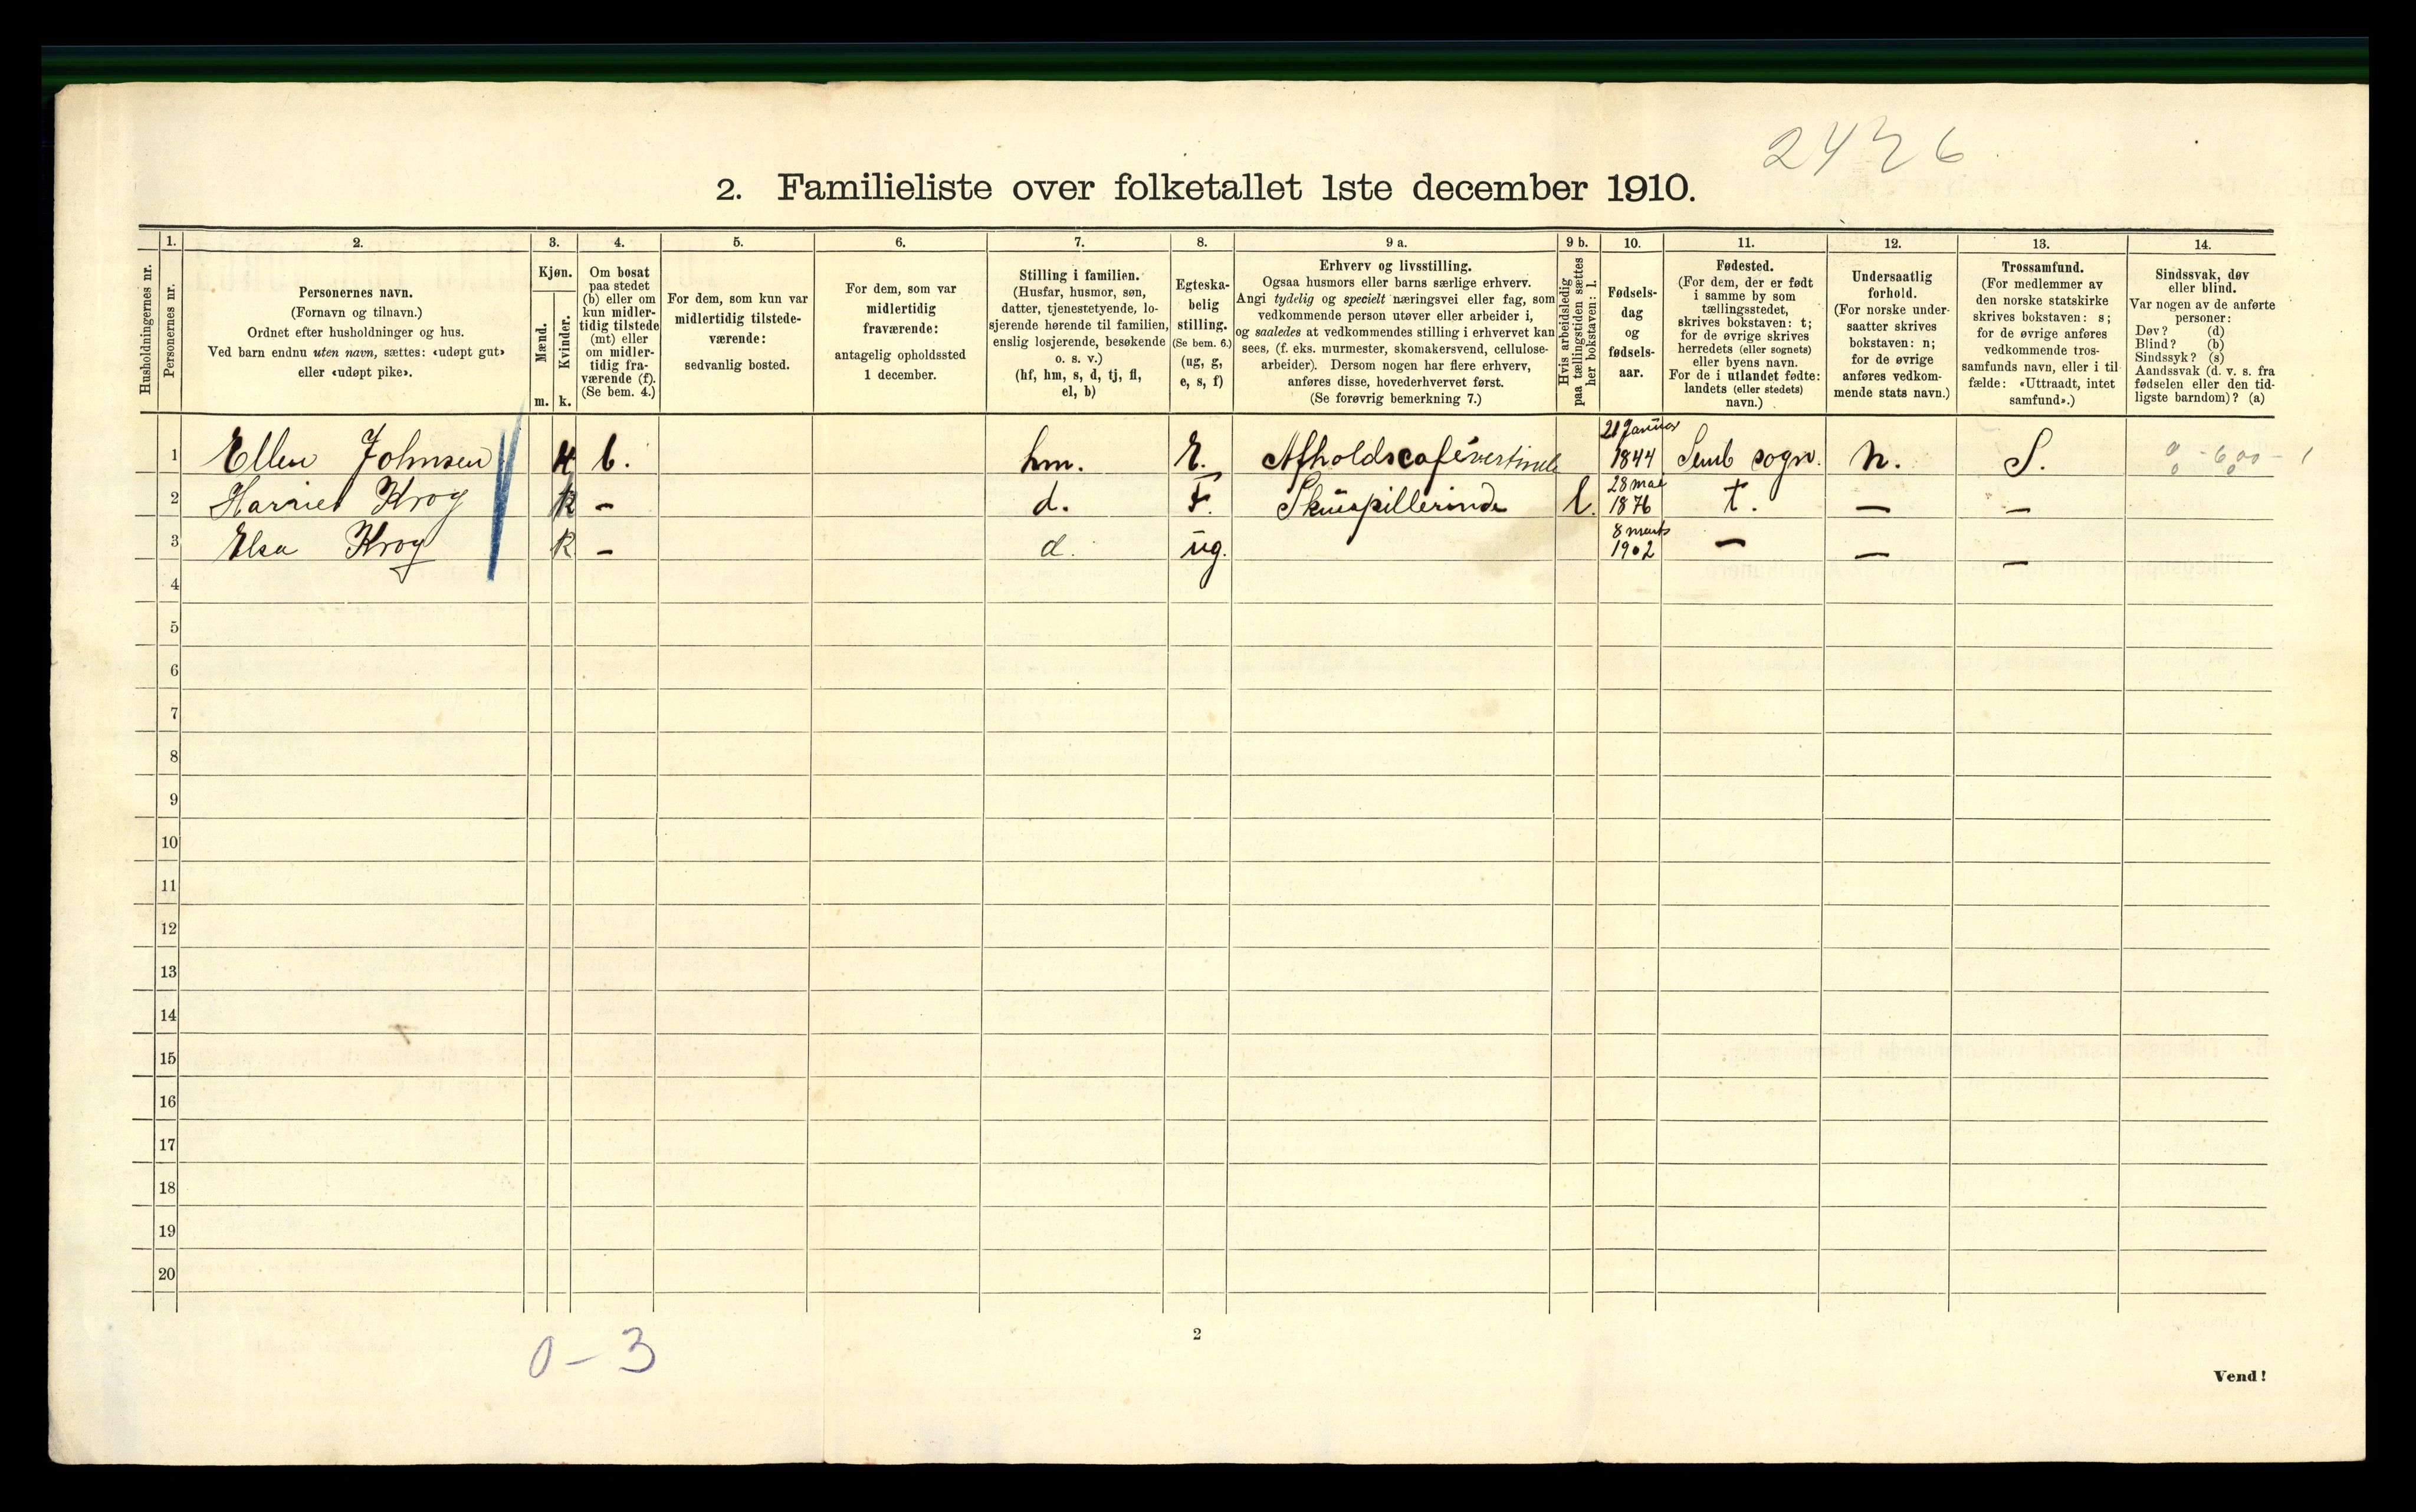 2426
2. Familieliste over folketallet 1ste december 1910.
Husholdningernes nr.
1.
Personernes nr.
2.
Personernes navn.
(Fornavn og tilnavn.)
Ordnet efter husholdninger og hus.
Ved barn endnu uten navn, sættes: «udøpt gut»
eller «udøpt pike».
3.
Kjøn.
Mænd.
Kvinder.
m. k.
4.
Om bosat
paa stedet
(b) eller om
kun midler-
tidig tilstede
(mt) eller
om midler-
tidig fra-
værende (f).
(Se bem. 4.)
5.
For dem, som kun var
midlertidig tilstede-
værende:
sedvanlig bosted.
6.
For dem, som var
midlertidig
fraværende:
antagelig opholdssted
1 december.
7.
Stilling i familien.
(Husfar, husmor, søn,
datter, tjenestetyende, lo-
sjerende hørende til familien,
enslig losjerende, besøkende
o. s. v.)
(hf, hm, s, d, tj, fl,
el, b)
8.
Egteska-
belig
stilling.
(Se bem. 6.)
(ug, g,
e, s, f)
9 a.
Erhverv og livsstilling.
Ogsaa husmors eller barns særlige erhverv.
Angi tydelig og specielt næringsvei eller fag, som
vedkommende person utøver eller arbeider i,
og saaledes at vedkommendes stilling i erhvervet kan
sees, (f. eks. murmester, skomakersvend, cellulose-
arbeider). Dersom nogen har flere erhverv,
anføres disse, hovederhvervet først.
(Se forøvrig bemerkning 7.)
9 b.
Hvis arbeidsledig
paa tællingstiden sættes
her bokstaven: l.
10.
Fødsels-
dag
og
fødsels-
aar.
11.
Fødested.
(For dem, der er født
i samme by som
tællingsstedet,
skrives bokstaven: t;
for de øvrige skrives
herredets (eller sognets)
eller byens navn.
For de i utlandet fødte:
landets (eller stedets)
navn.)
12.
Undersaatlig
forhold.
(For norske under-
saatter skrives
bokstaven: n;
for de øvrige
anføres vedkom-
mende stats navn.)
13.
Trossamfund.
(For medlemmer av
den norske statskirke
skrives bokstaven: s;
for de øvrige anføres
vedkommende tros-
samfunds navn, eller i til-
fælde: «Uttraadt, intet
samfund».)
14.
Sindssvak, døv
eller blind.
Var nogen av de anførte
personer:
Døv? (d)
Blind? (b)
Sindssyk? (s)
Aandssvak (d. v. s. fra
fødselen eller den tid-
ligste barndom)? (a)
1 Ellen Johnsen K b. hm. E. Afholdscafévertinde 21 Januar 1844 Semb sogn. n. S.
2 Harriet Krog k - d. F. Skuespillerinde l. 28 mai 1876 t. - -
3 Elsa Krog k - d. ug. 8 marts 1902 - - -
4
5
6
7
8
9
10
11
12
13
14
15
16
17
18
19
20
0 - 3
2
Vend!